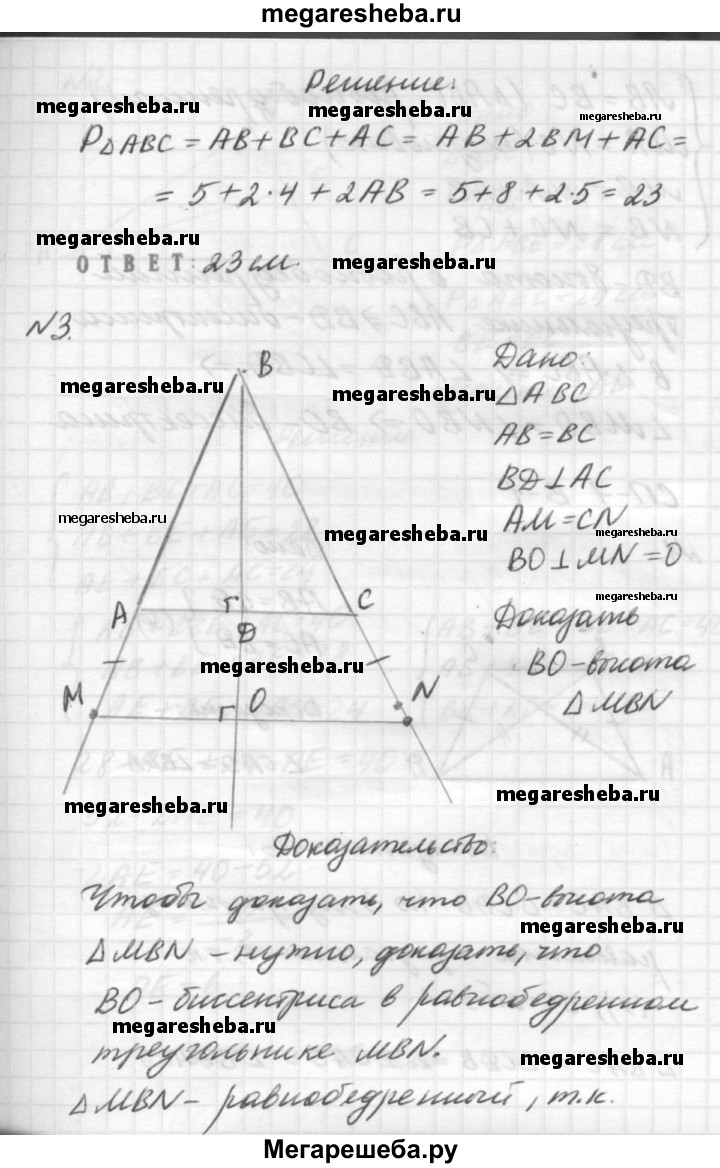 megaresheba.ru
Решение:
megaresheba.ru megaresheba.ru megaresheba.ru
P△ABC = AB+BC+AC= AB+2BM+AC=
= 5+2·4+2AB = 5+8+2·5=23
megaresheba.ru
ОТВЕТ: 23 см. megaresheba.ru
№3.
B
Дано:
megaresheba.ru megaresheba.ru
△ABC
AB=BC
BD⊥AC
megaresheba.ru
AM=CN
megaresheba.ru megaresheba.ru
BO⊥MN=O
megaresheba.ru
A C
D
Доказать
megaresheba.ru
BO-высота
M O N
△MBN
megaresheba.ru megaresheba.ru
Доказательство:
Чтобы доказать, что BO-высота
megaresheba.ru
△MBN – нужно, доказать, что
BO – биссектриса в равнобедренном
megaresheba.ru
треугольнике MBN.
megaresheba.ru
△MBN – равнобедренный, т.к.
Мегарешеба.ру